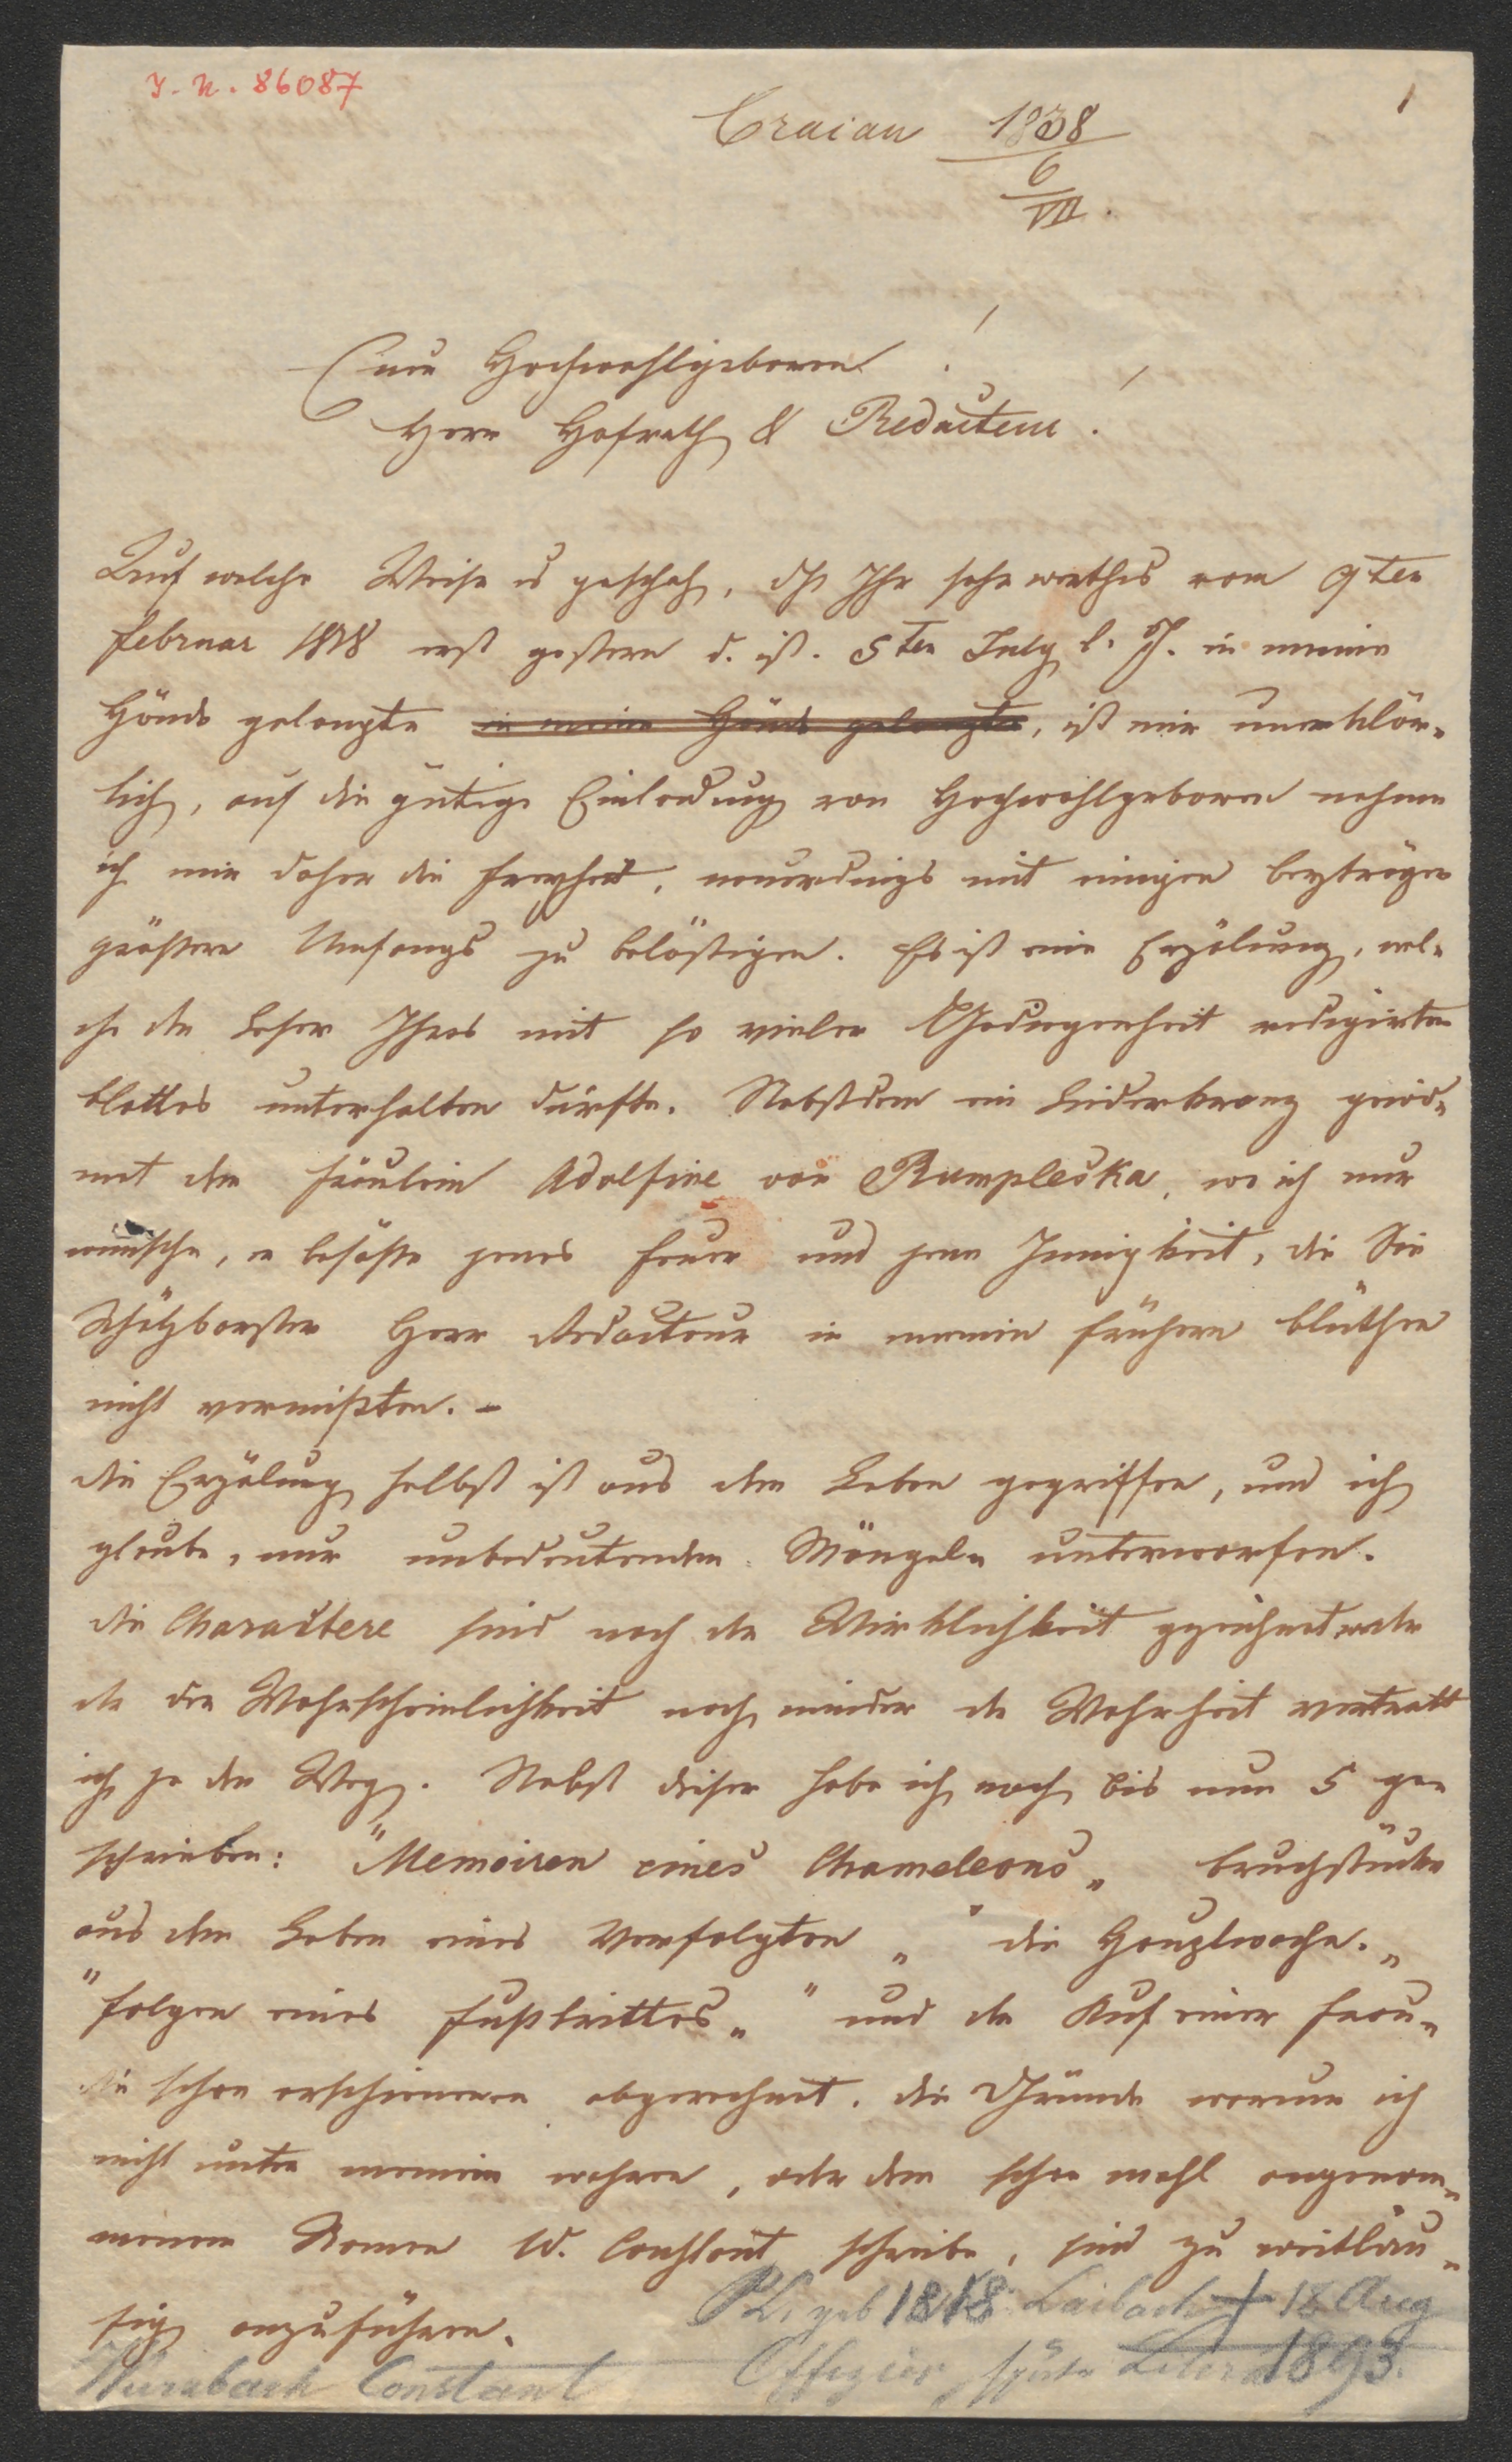 I. N. 86087
1
Craiau 1838
6
VII.
Eure Hochwohlgeboren!
Herr Hofrath & Redacteur!
Auf welche Weise es geschah, dß Ihr sehr werthes vom 9ten
Februar 1838 erst gestern d. ist. 5ten July l. J. in meine
Hände gelangte in meine Hände gelangte, ist mir unerklär-
lich, auf die gütige Einladung von Hochwohlgeboren nehme
ich mir daher die Freyheit, neuerdings mit einigen Beyträgen
größern Umfangs zu belästigen. Es ist eine Erzälung, wel-
che die Leser Ihres mit so vieler Gediegenheit redigirten
Blattes unterhalten dürfte. Nebstdem ein Liederkranz gewid-
met dem Fräulein Adolfine von Rumpleska, wo ich nur
wünsche, er besäße jenes Feuer und jene Innigkeit, die Sie
Schätzbarster Herr Redacteur in meinen frühern Blüthen
nicht vermißten. –
die Erzälung selbst ist aus dem Leben gegriffen, und ich
glaube, nur unbedeutenden Mängeln unterworfen.
die Charactere sind nach der Wirklichkeit gezeichnet weder
der Wahrscheinlichkeit noch minder der Wahrheit vertratt
ich je den Weg. Nebst dieser habe ich noch bis nun 5 ge-
schrieben: "Memoiren eines Chameleons" Bruchstücke
aus dem Leben eines Verfolgten" "die
"Folgen eines Fußtrittes" "und der Kuß einer Frau"
die schon erschienenen abgerechnet. die Gründe warum ich
nicht unter meinem wahren, oder dem schon mahl angenom-
menen Namen W. Constant schreibe, sind zu weitläu-
fig anzuführen.
geb 1818 Laibach † 18 Aug
Wurzbach Constant Offizier, später 1893.